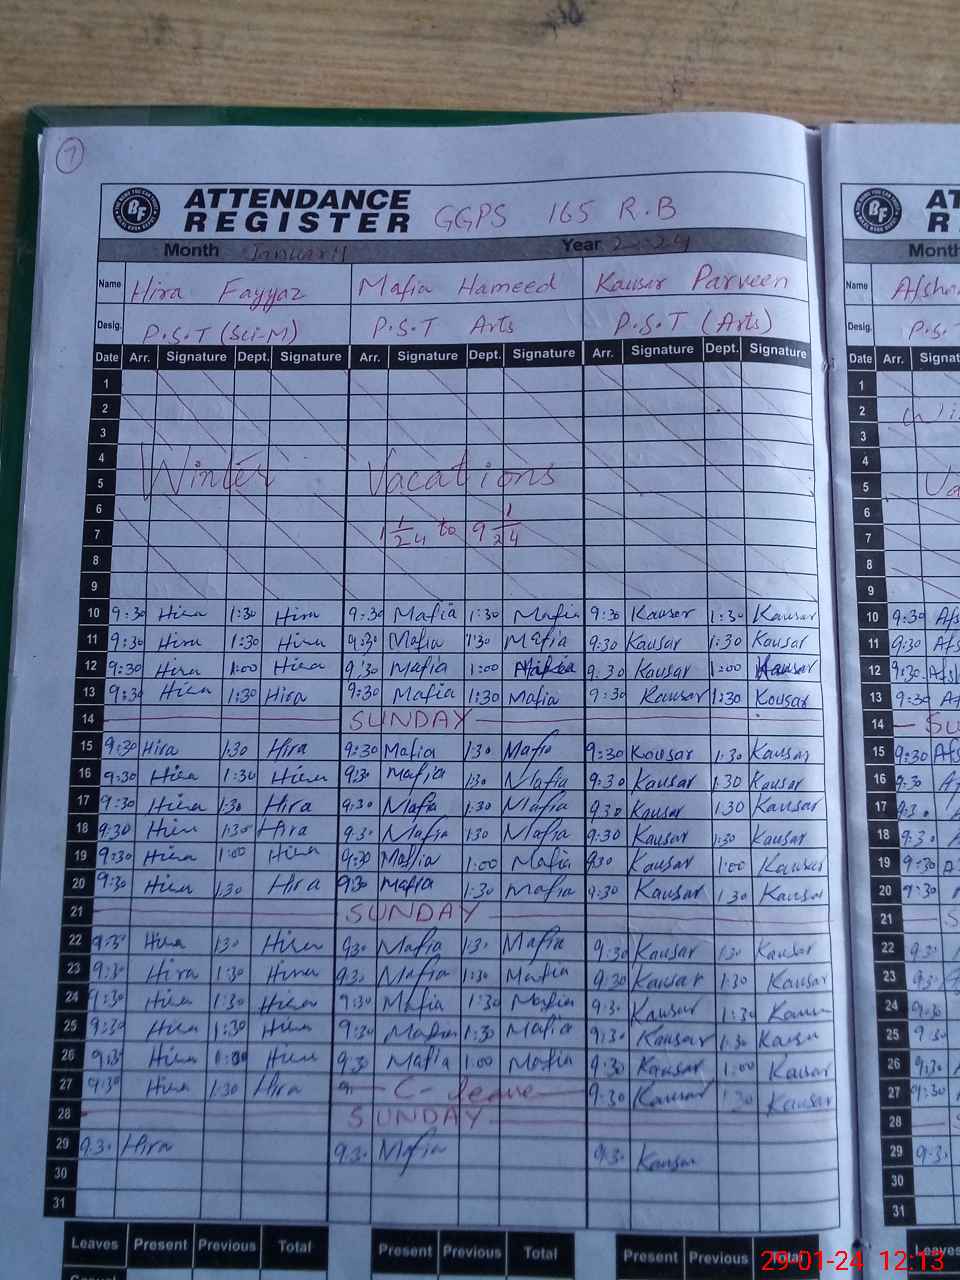 7
BF
ATTENDANCE
REGISTER GGPS 165 R.B
Month January Year 2024
Name Hira Fayyaz Mafia Hameed Kausar Parveen
Desig. P.S.T (Sci-M) P.S.T Arts P.S.T (Arts)
Date Arr. Signature Dept. Signature Arr. Signature Dept. Signature Arr. Signature Dept. Signature
1
2
3
4
5 Winter Vacations
6
7 1 1/24 to 9 1/24
8
9
10 9:30 Hira 1:30 Hira 9:30 Mafia 1:30 Mafia 9:30 Kausar 1:30 Kausar
11 9:30 Hira 1:30 Hira 9:30 Mafia 1:30 Mafia 9:30 Kausar 1:30 Kausar
12 9:30 Hira 1:00 Hira 9:30 Mafia 1:00 Mafia 9:30 Kausar 1:00 Kausar
13 9:30 Hira 1:30 Hira 9:30 Mafia 1:30 Mafia 9:30 Kausar 1:30 Kausar
14 SUNDAY
15 9:30 Hira 1:30 Hira 9:30 Mafia 1:30 Mafia 9:30 Kausar 1:30 Kausar
16 9:30 Hira 1:30 Hira 9:30 Mafia 1:30 Mafia 9:30 Kausar 1:30 Kausar
17 9:30 Hira 1:30 Hira 9:30 Mafia 1:30 Mafia 9:30 Kausar 1:30 Kausar
18 9:30 Hira 1:30 Hira 9:30 Mafia 1:30 Mafia 9:30 Kausar 1:30 Kausar
19 9:30 Hira 1:00 Hira 9:30 Mafia 1:00 Mafia 9:30 Kausar 1:00 Kausar
20 9:30 Hira 1:30 Hira 9:30 Mafia 1:30 Mafia 9:30 Kausar 1:30 Kausar
21 SUNDAY
22 9:30 Hira 1:30 Hira 9:30 Mafia 1:30 Mafia 9:30 Kausar 1:30 Kausar
23 9:30 Hira 1:30 Hira 9:30 Mafia 1:30 Mafia 9:30 Kausar 1:30 Kausar
24 9:30 Hira 1:30 Hira 9:30 Mafia 1:30 Mafia 9:30 Kausar 1:30 Kausar
25 9:30 Hira 1:30 Hira 9:30 Mafia 1:30 Mafia 9:30 Kausar 1:30 Kausar
26 9:30 Hira 1:00 Hira 9:30 Mafia 1:00 Mafia 9:30 Kausar 1:00 Kausar
27 9:30 Hira 1:30 Hira C-leave 9:30 Kausar 1:30 Kausar
28 SUNDAY
29 9:30 Hira 9:30 Mafia 9:30 Kausar
30
31
Leaves Present Previous Total Present Previous Total Present Previous Total
BF
Name
Desig. P.S.T
Date Arr.
1
2
3
4
5
6
7
8
9
10 9:30
11 9:30
12 9:30
13 9:30
14
15 9:30
16 9:30
17 9:30
18 9:30
19 9:30
20 9:30
21
22 9:30
23 9:30
24 9:30
25 9:30
26 9:30
27 9:30
28
29 9:30
30
31
Leaves
29-01-24 12:13